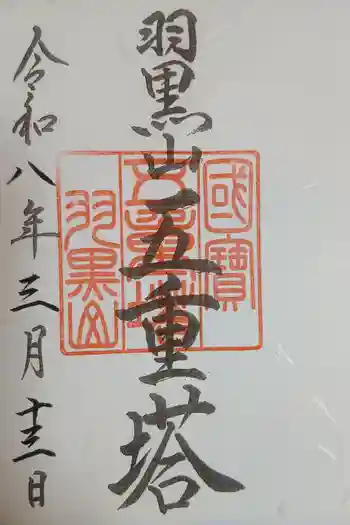 羽黒山
五重塔
國寶
五重塔
羽黒山
令和八年三月十三日